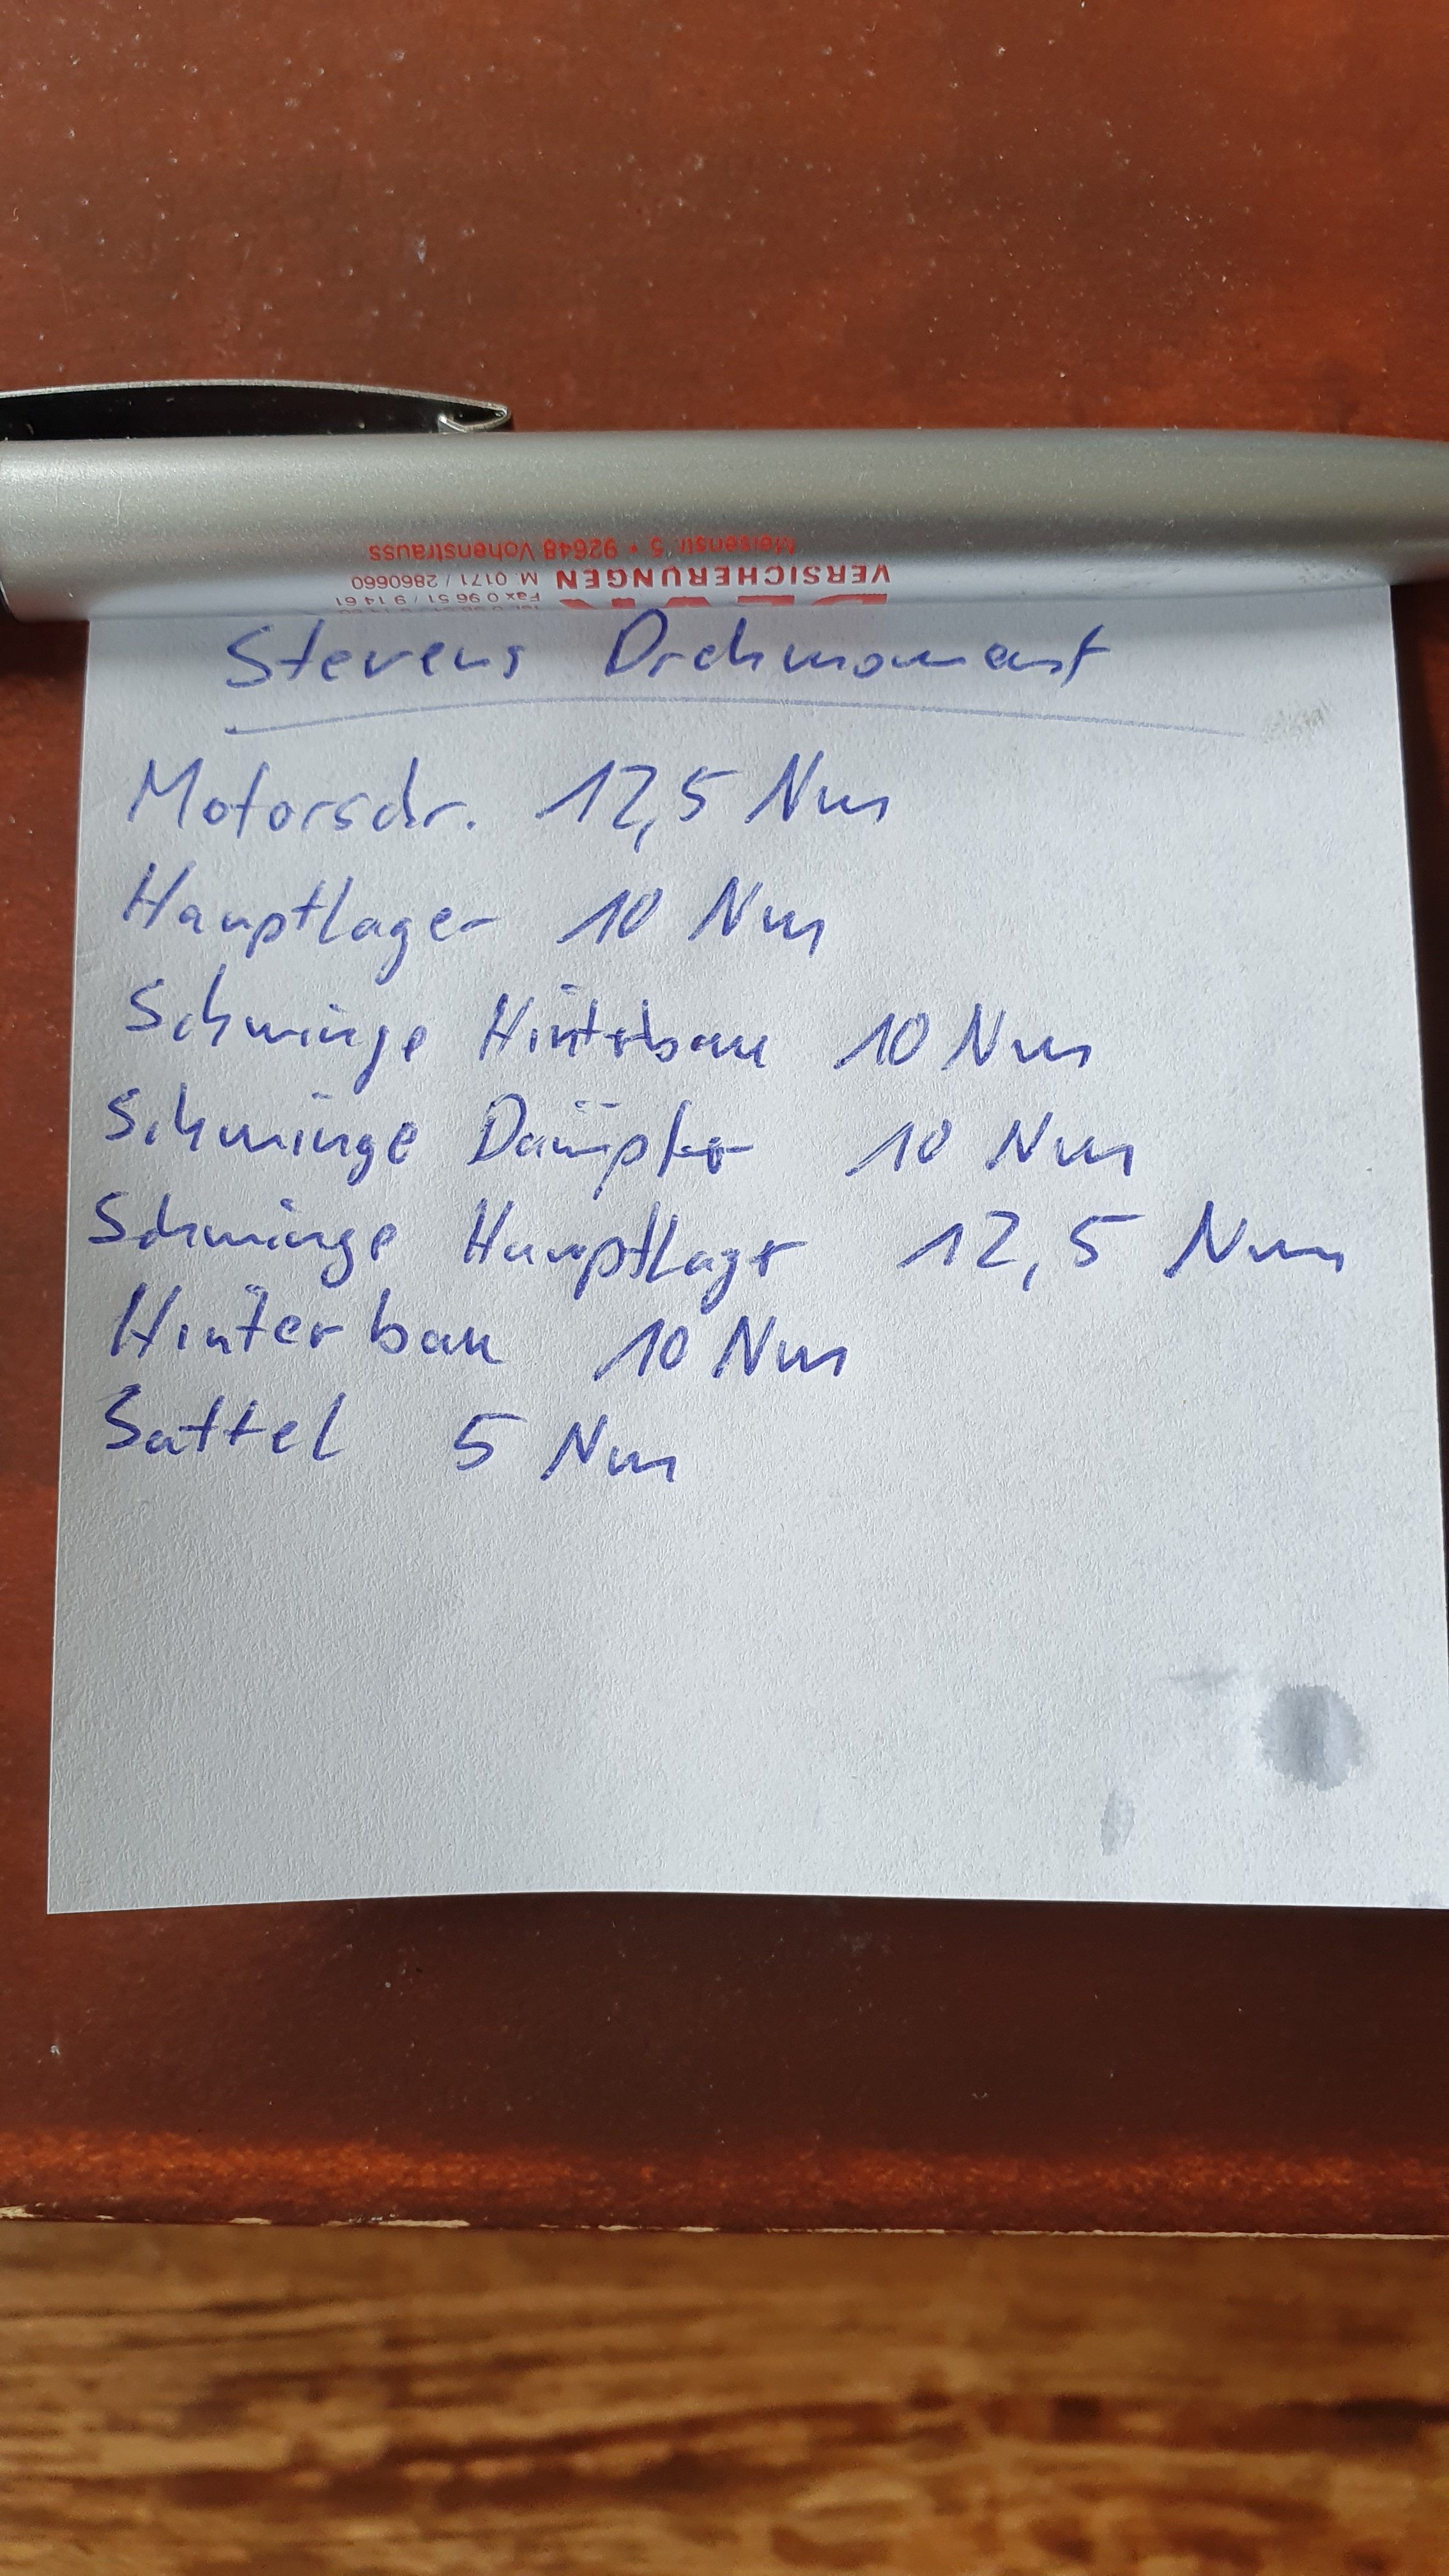 Meisenstr. 5 • 92648 Vohenstrauss
VERSICHERUNGEN
M 0171 / 2860660
Fax 0 96 51 / 9 14 61
Stevens Drehmoment
Motorschr. 12,5 Nm
Hauptlager 10 Nm
Schwinge Hinterbau 10 Nm
Schwinge Dämpfer 10 Nm
Schwinge Hauptlager 12,5 Nm
Hinterbau 10 Nm
Sattel 5 Nm